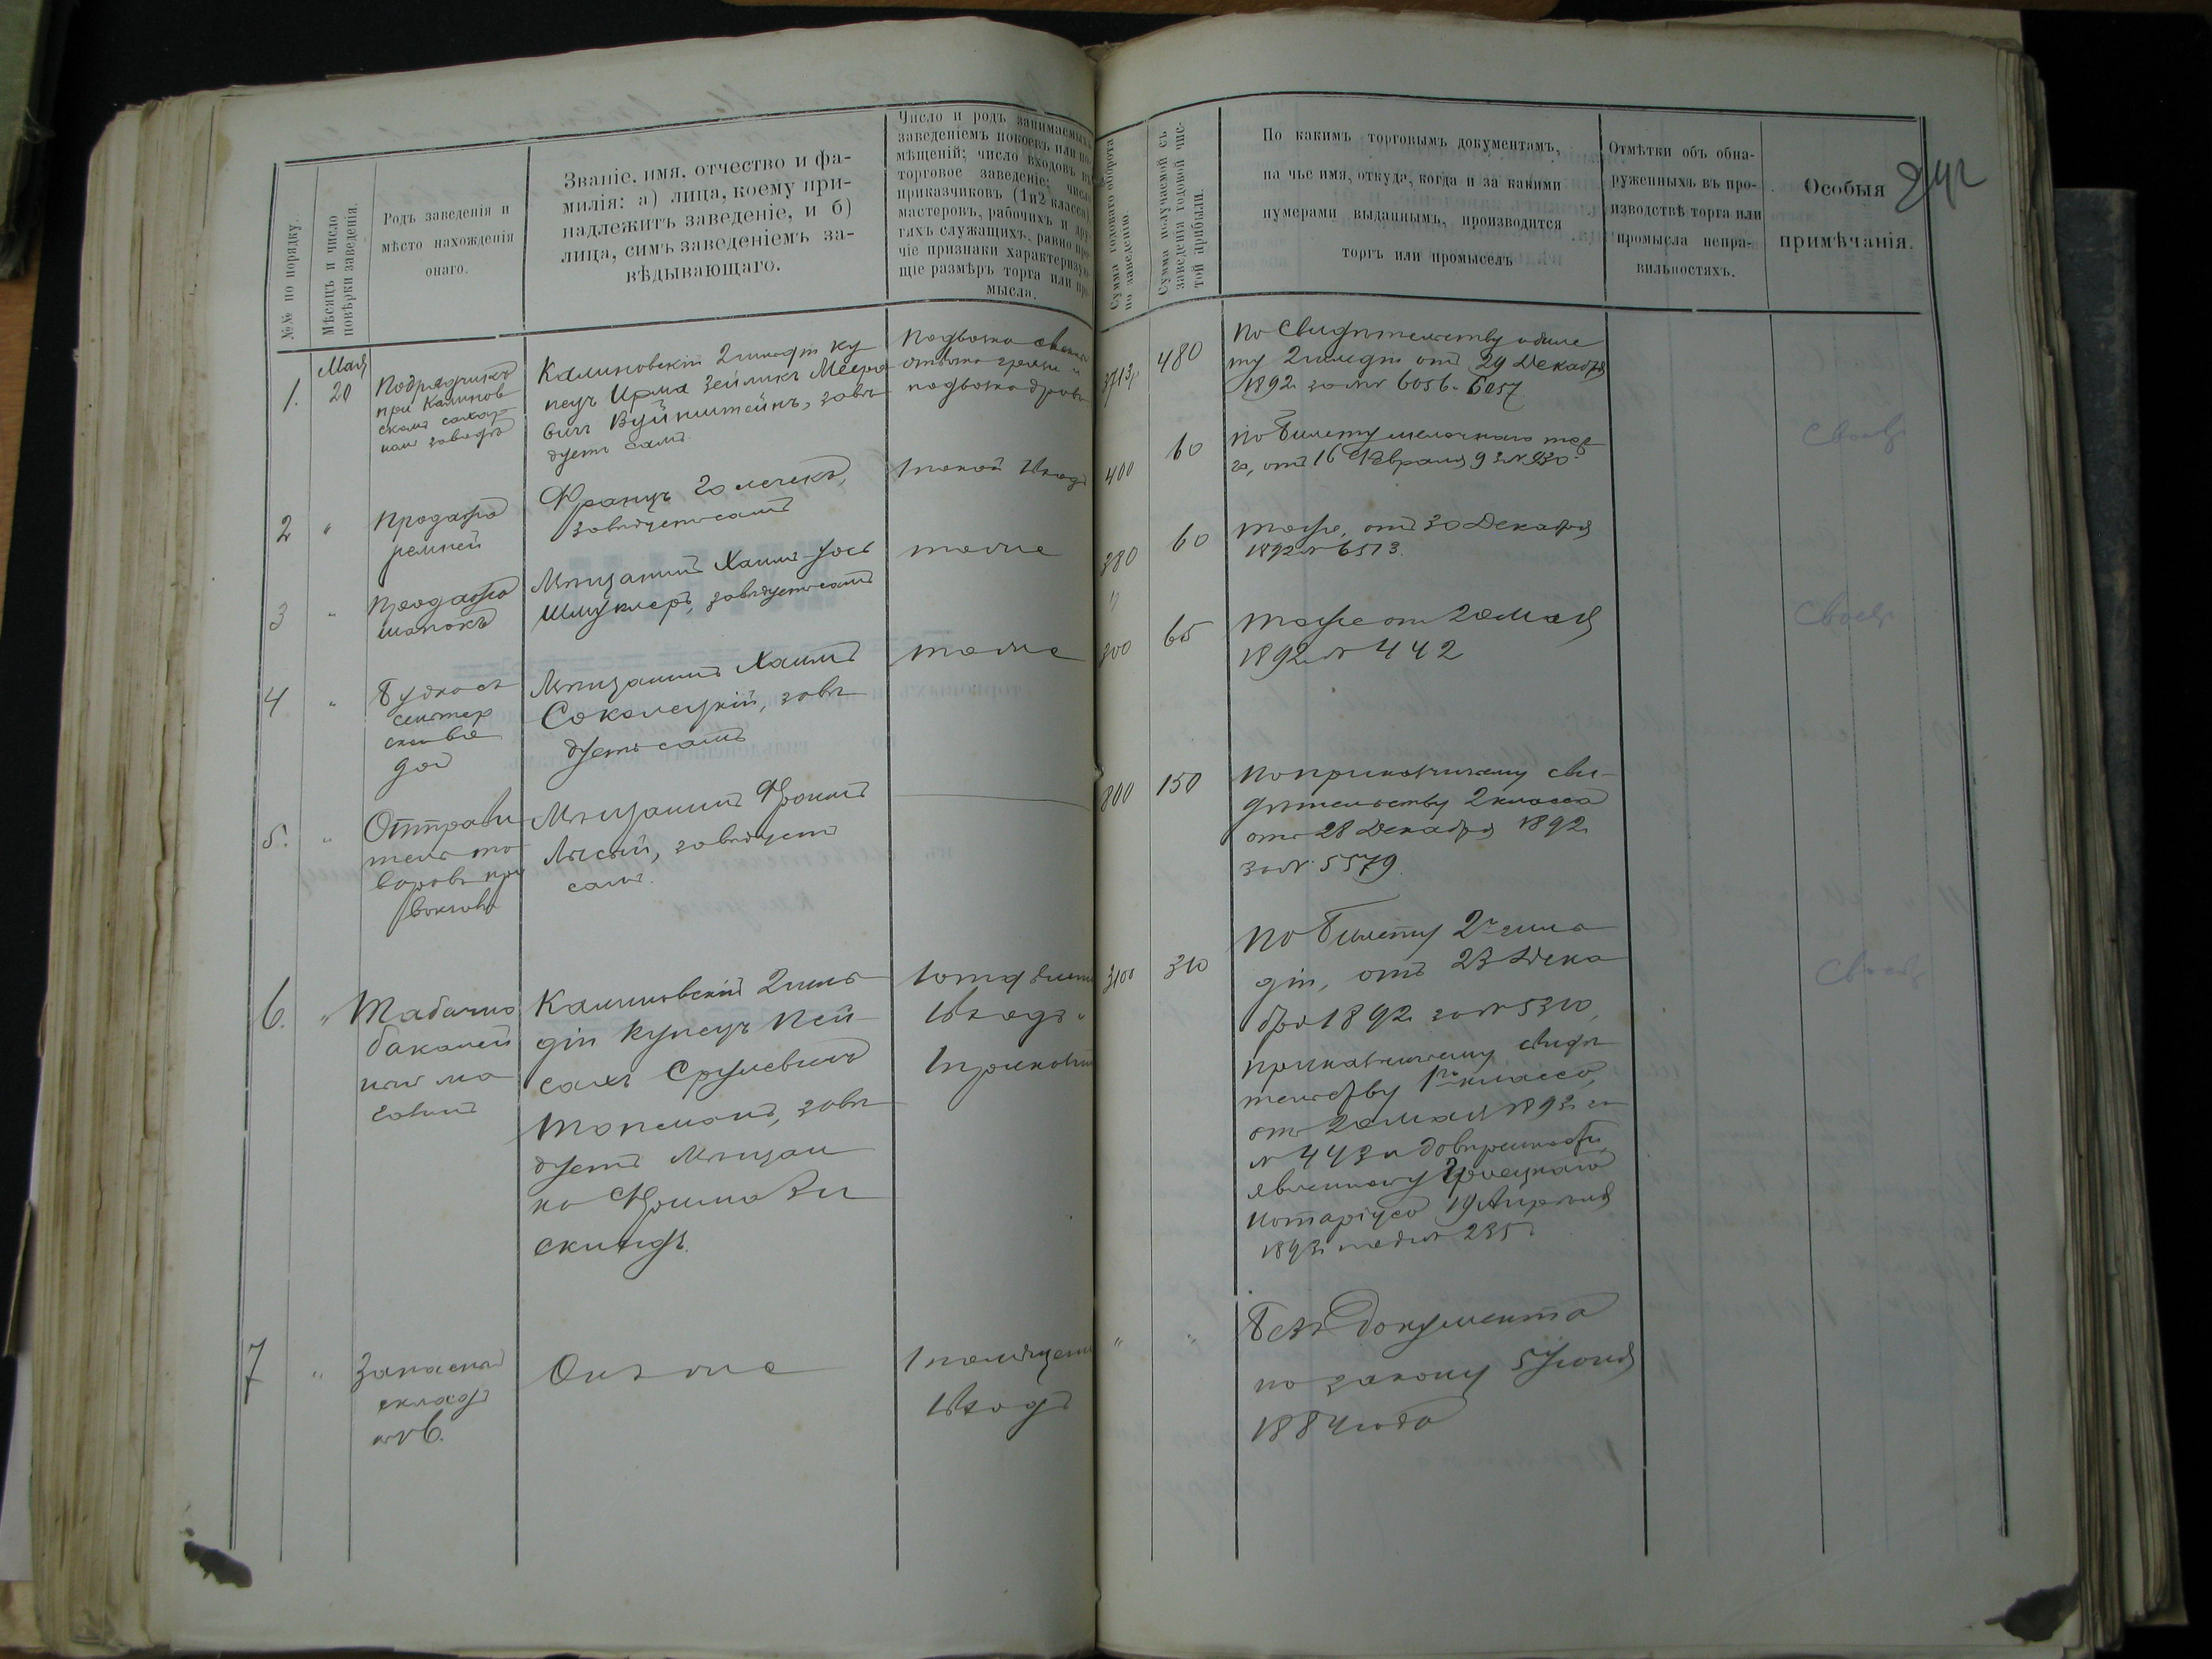 №№ по порядку.
Мѣсяцъ и число
повѣрки заведенія.
Родъ заведенія и
мѣсто нахожденія
онаго.
Званіе, имя, отчество и фа-
милія: а) лица, коему при-
надлежитъ заведеніе, и б)
лица, симъ заведеніемъ за-
вѣдывающаго.
Число и родъ занимаемыхъ
заведеніемъ покоевъ или по-
мѣщеній; число входовъ въ
торговое заведеніе; число
приказчиковъ (1 и 2 класса)
мастеровъ, рабочихъ и дру-
гихъ служащихъ, равно про-
чіе признаки характеризую-
щіе размѣръ торга или про-
мысла.
Сумма годоваго оборота
по заведенію.
Сумма получаемой съ
заведенія годовой чис-
той прибыли.
По какимъ торговымъ документамъ,
на чье имя, откуда, когда и за какими
нумерами выданнымъ, производится
торгъ или промыселъ
Отмѣтки объ обна-
руженныхъ въ про-
изводствѣ торга или
промысла непра-
вильностяхъ.
Особыя
примѣчанія.
1.
Мая
20
Подрядчикъ
при Калинов
скомъ сахар
номъ заводѣ
Калиновскій 2 гильдіи ку
пецъ Зейликъ Мееро
вичъ Вуйнштейнъ, завѣ
дуетъ самъ
Подвозка
отвозка и
подвозка дровъ
3713
480
По Свидѣтельству и биле
ту 2 гильдіи отъ 29 Декабря
1892 за №№ 6056. 6057
2
"
Продажа
ремней
Францъ Голечекъ,
завѣдуетъ самъ
1 покой 1 входъ
400
60
По билету мелочнаго тор
га, отъ 16 Февраля 93 № 930
Своевр
3
"
Продажа
шапокъ
Мѣщанинъ Хаимъ-Іось
Шмуклеръ, завѣдуетъ самъ
тоже
380
60
Тоже, отъ 30 Декабря
1892 № 6513.
4
"
Будка съ
сельтер
ской во
дой
Мѣщанинъ Хаимъ
Соколецкій, завѣ
дуетъ самъ
тоже
300
65
Тоже отъ 20 Мая
1892 № 442
Своевр
5.
"
Отправи
тель то
варовъ при
вокзалѣ
Мѣщанинъ Фроимъ
Лысый, завѣдуетъ
самъ.
800
150
По приказчичьему сви-
дѣтельству 2 класса
отъ 28 Декабря 1892
за № 5579.
6.
"
Табачно
бакалей
ный ма
газинъ
Калиновскій 2 гиль
діи купецъ Пей
сахъ Срулевичъ
завѣ
дуетъ Мѣщан
ка
1 входъ
3100
310
По билету 2й гиль
діи, отъ 23 Дека
бря 1892 за № 5310,
приказчичьему свидѣ
тельству 1го класса,
отъ 20 Мая 1893 за
№ 443 и довѣренности,
явленной у
нотаріуса 19 Апрѣля
1893 г. подъ № 235
Своевр
7
"
Запасный
складъ
къ № 6.
Онъ же
1 помѣщеніе
1 входъ
"
"
Безъ документа
по закону 5 Іюня
1884 года